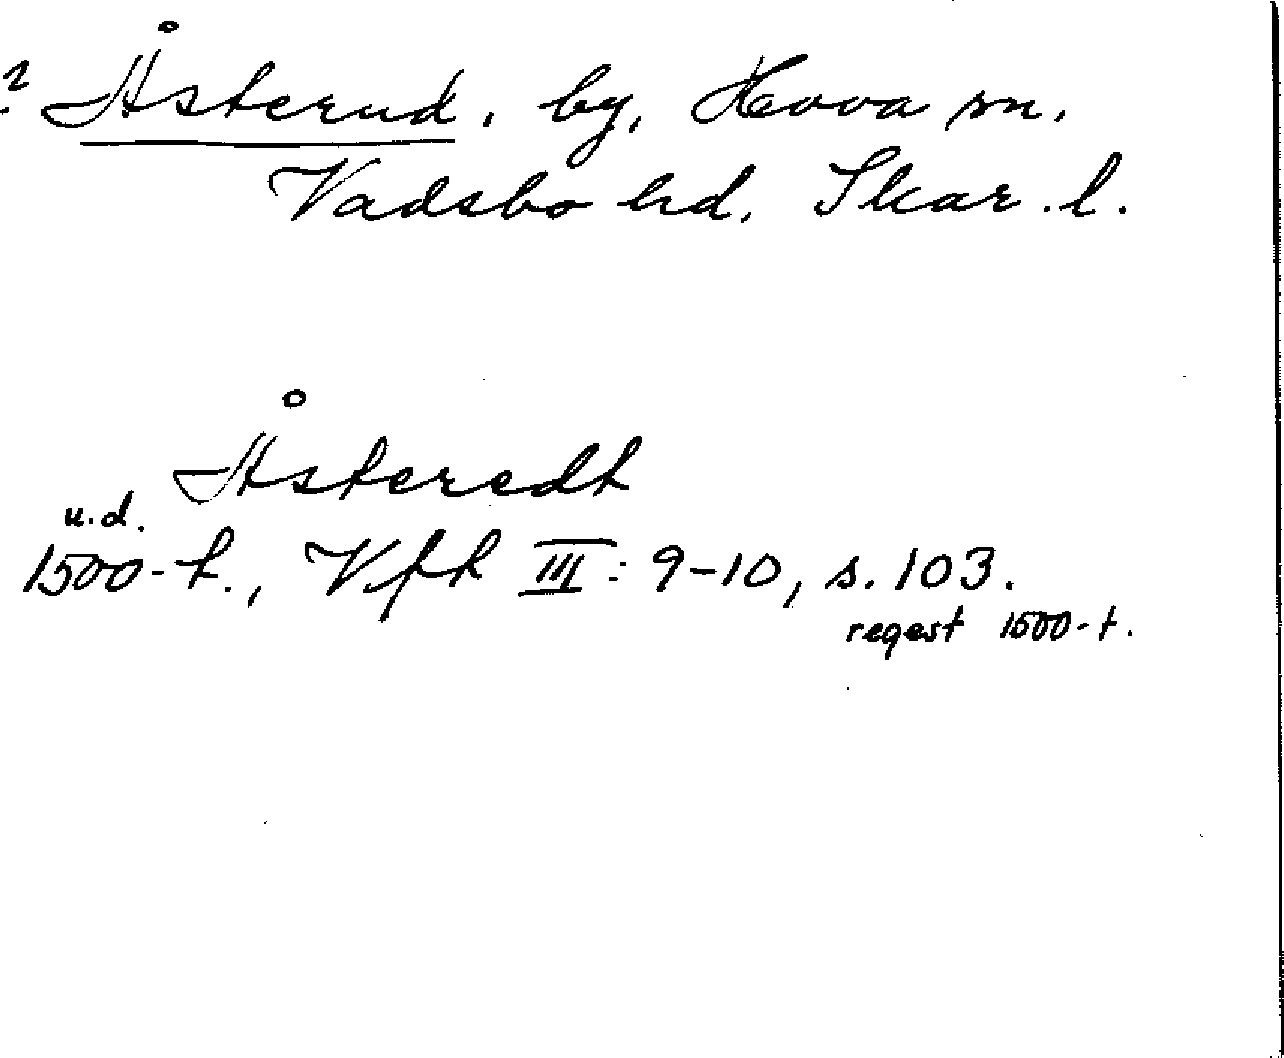 ? Åsterud, by, Hova sn.
Vadsbo hd. Skar. l.
Åsteredt
u.d.
1500-t., Vft III: 9-10, s. 103.
regest 1500-t.